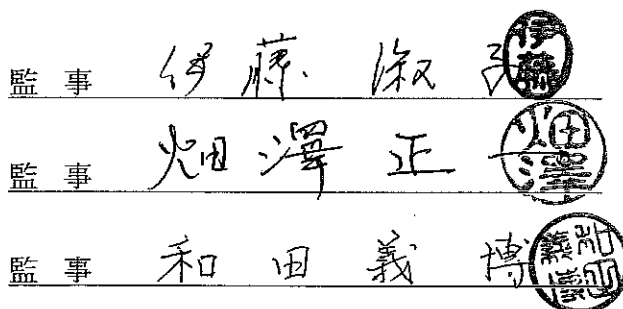 監事 伊藤 淑子 伊藤
監事 畑澤正一 畑澤
監事 和田義博